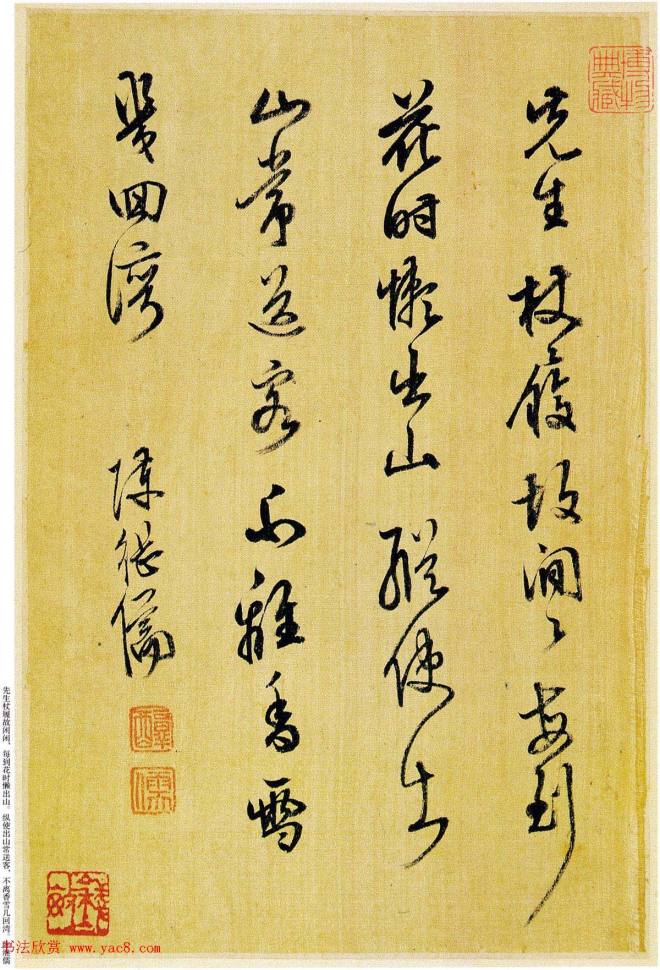 先生杖履故闲〻每到
花时懒出山縱使出
山常送客不離香雪
幾回湾
陳繼儒
博物
典藏
先生杖履故闲闲，每到花时懒出山。纵使出山常送客，不离香雪几回湾。
书法欣赏 www.yac8.com